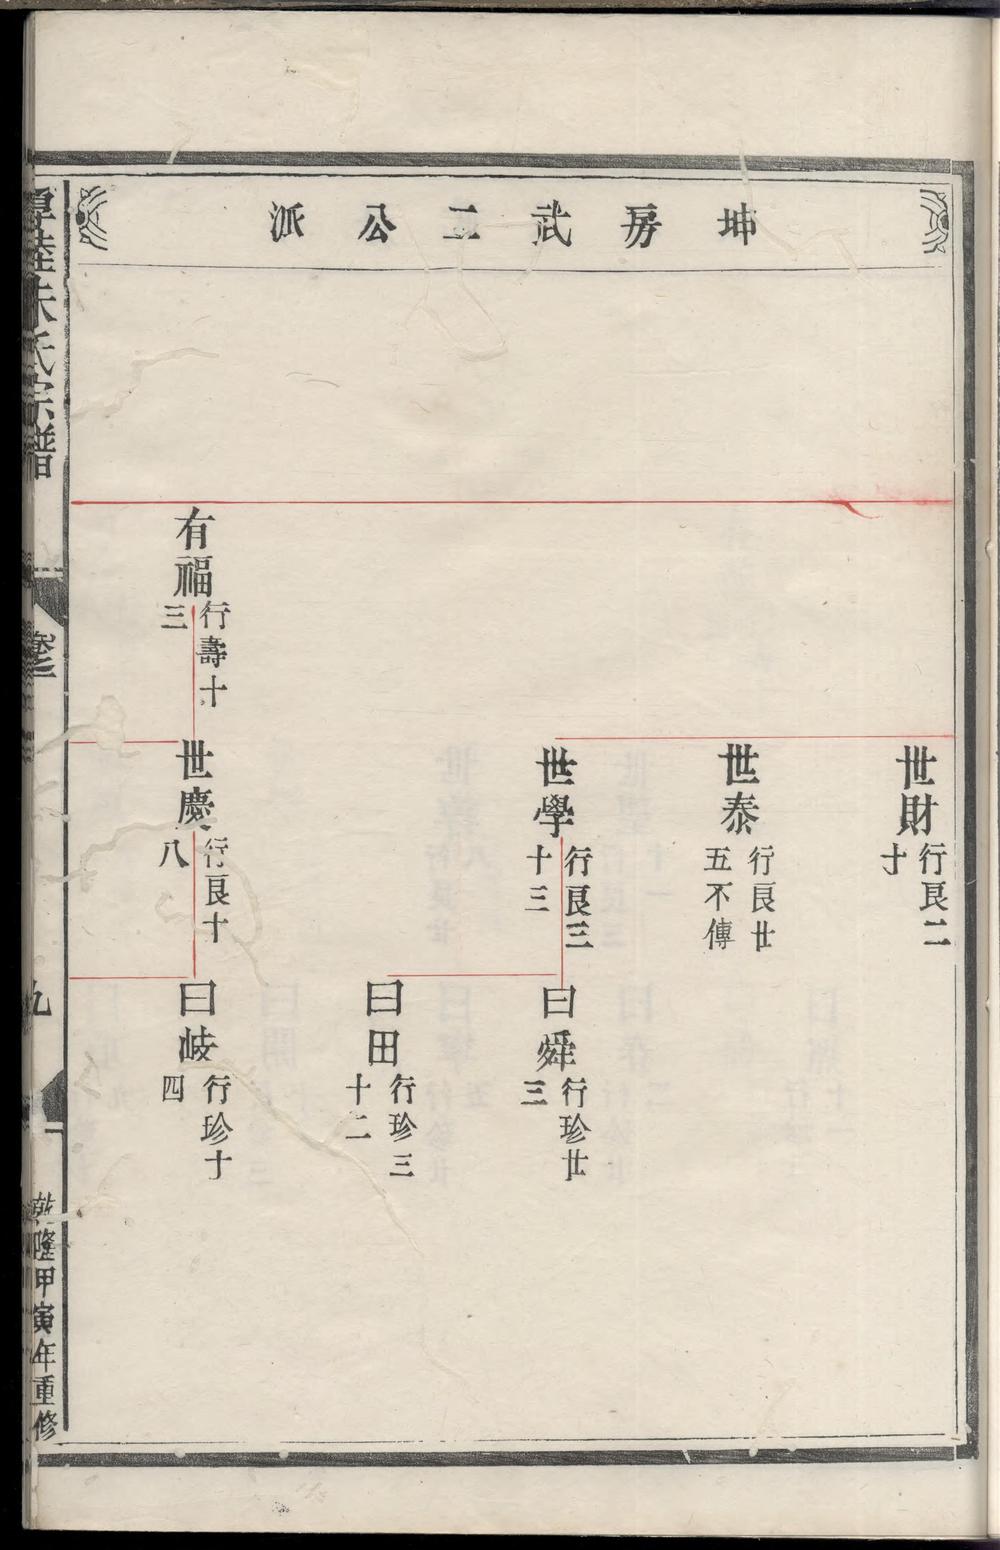 坤房武二公派
世財
行良二
十
世泰
行良廿
五不傳
世學
行良三
十三
曰舜
行珍廿
三
曰田
行珍三
十二
有福
行壽十
三
世慶
行良十
八
曰岐
行珍十
四
朱氏宗譜
卷
九
乾隆甲寅年重修